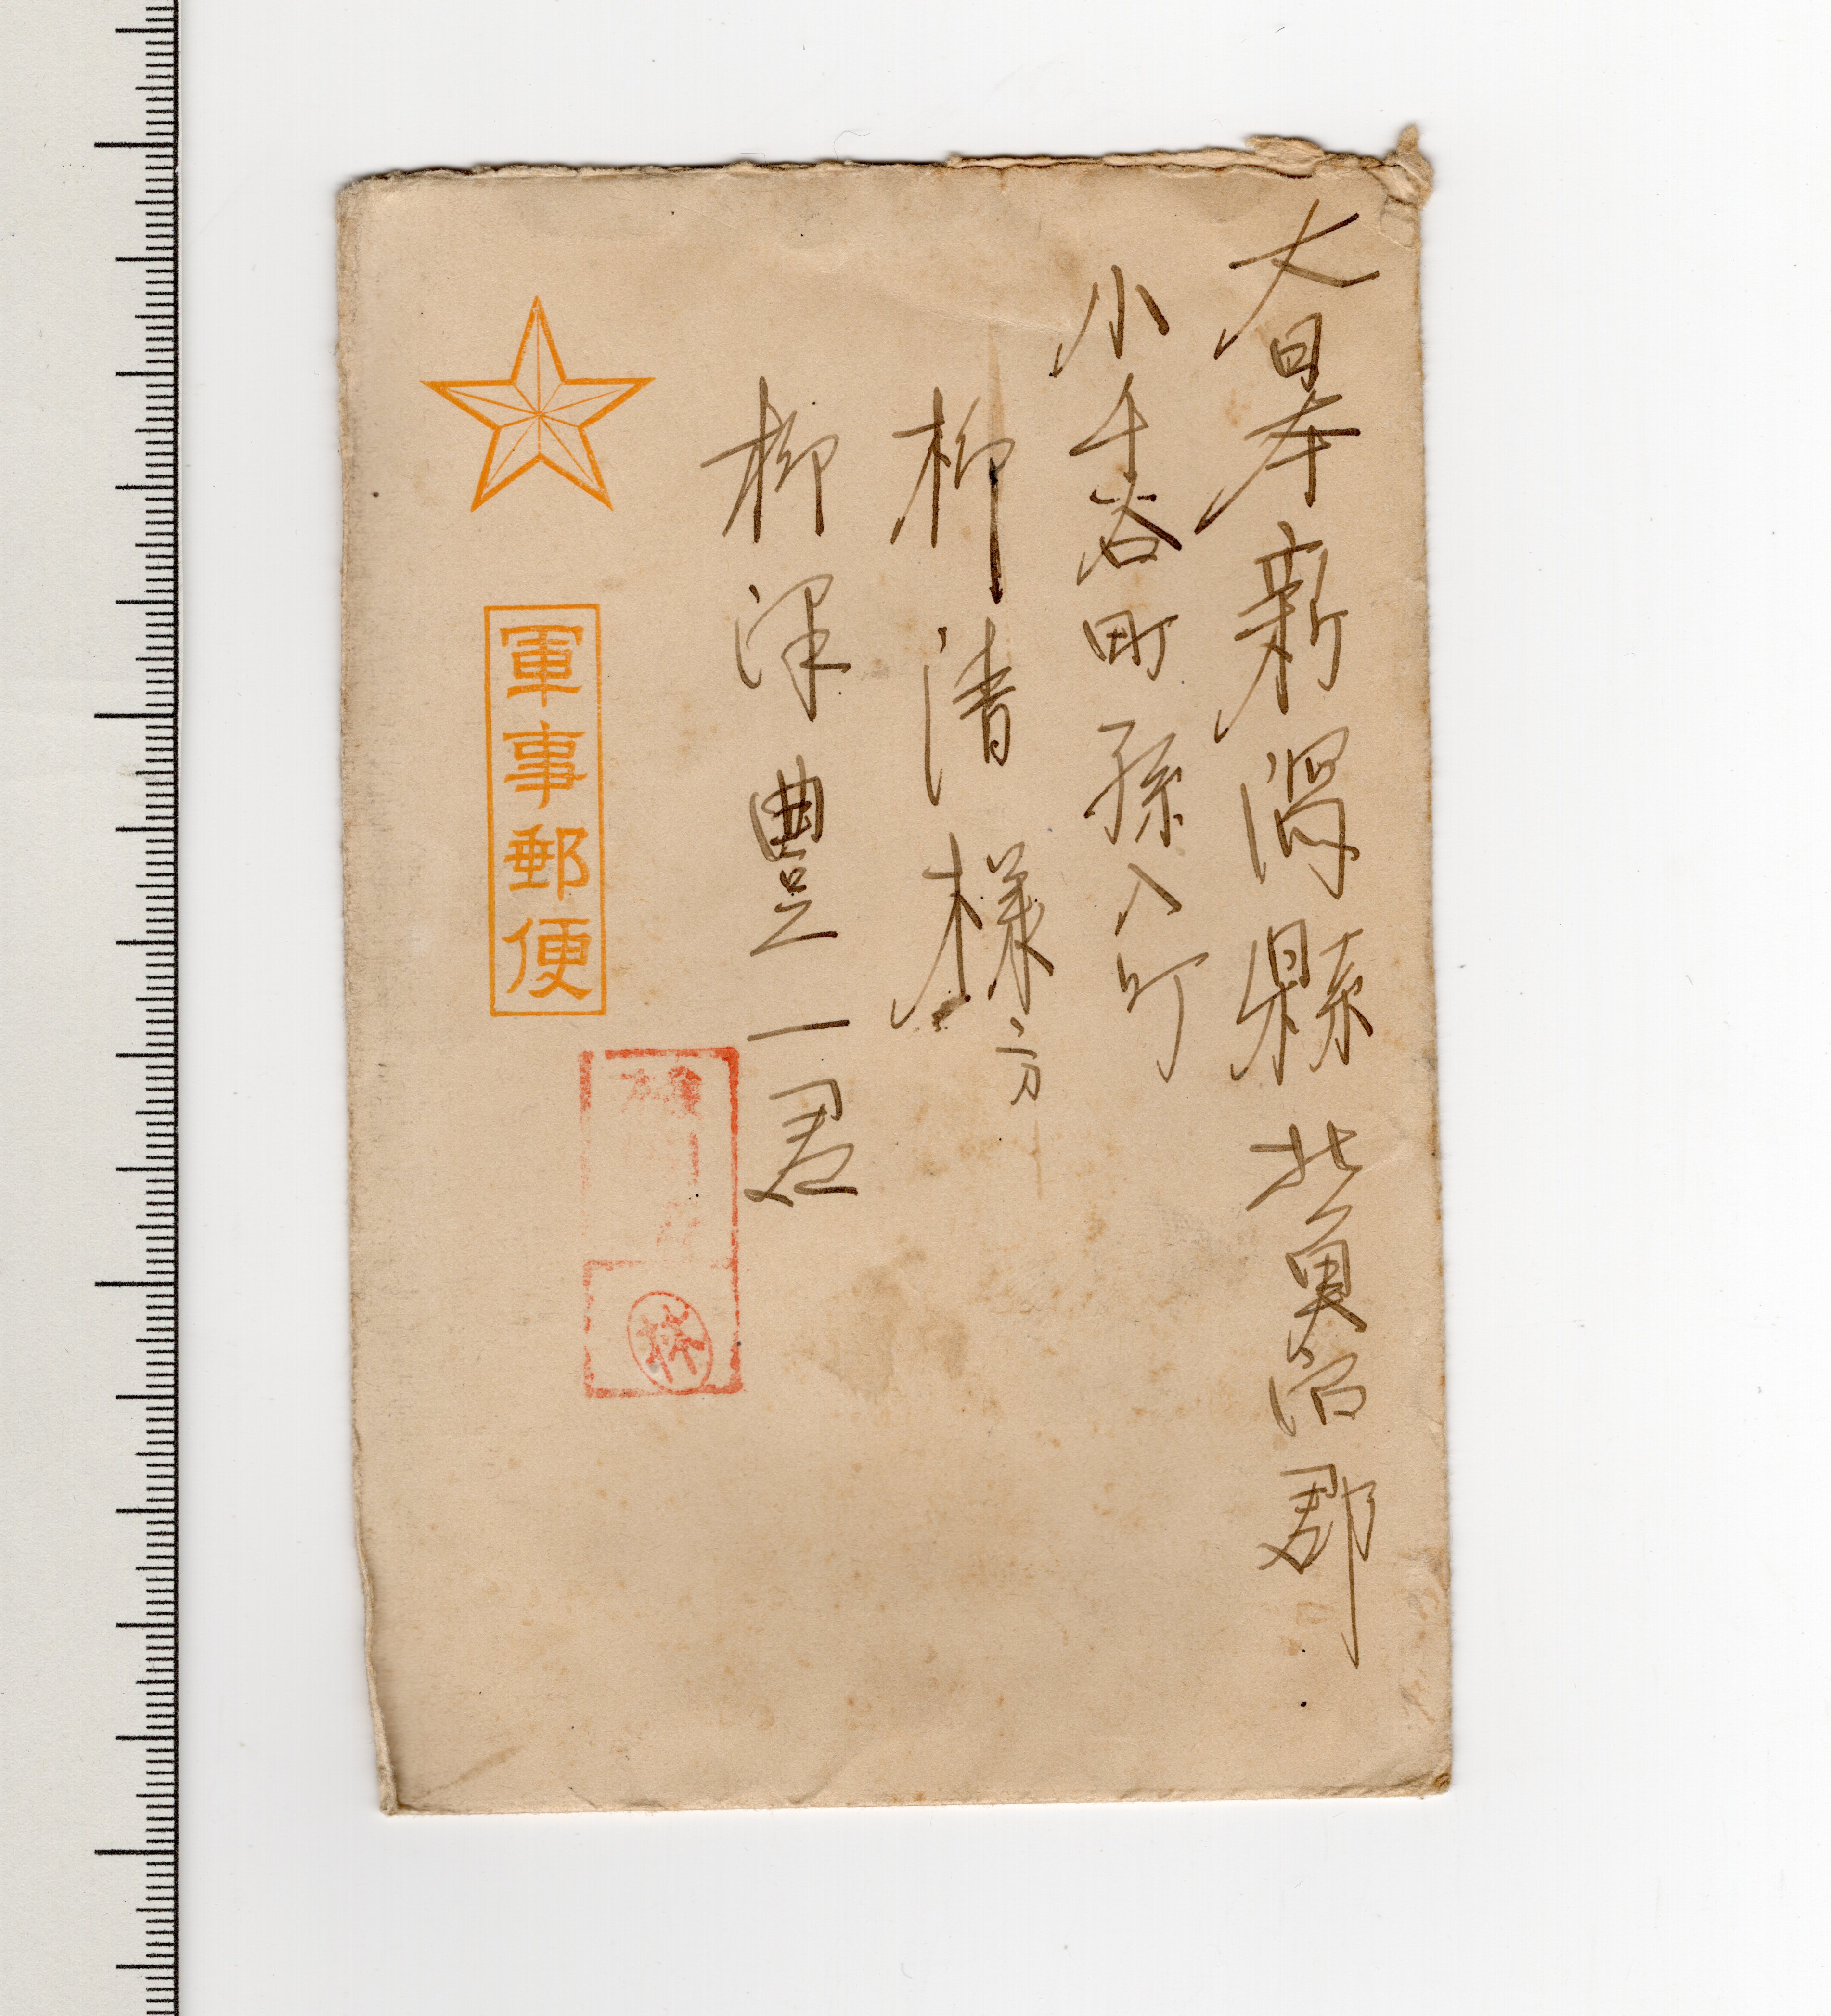 大日本新潟縣北魚沼郡
小千谷町孫入町
柳清様方
柳澤豊一君
軍事郵便
林